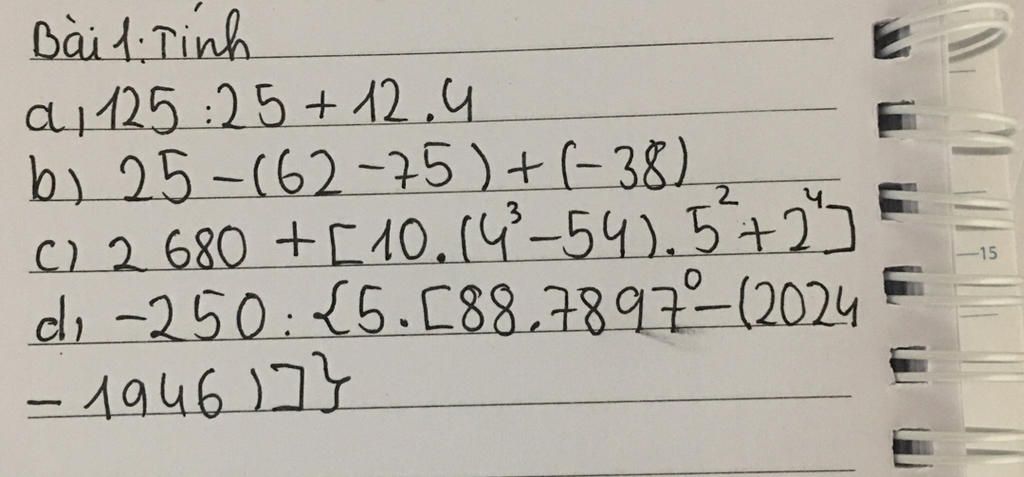 Bài 1: Tính
a, 125 : 25 + 12 . 4
b) 25 - (62 - 75) + (-38)
c) 2 680 + [10 . (4³ - 54) . 5² + 2⁴]
d, -250 : {5 . [88 . 7897⁰ - (2024
- 1946)]}
15